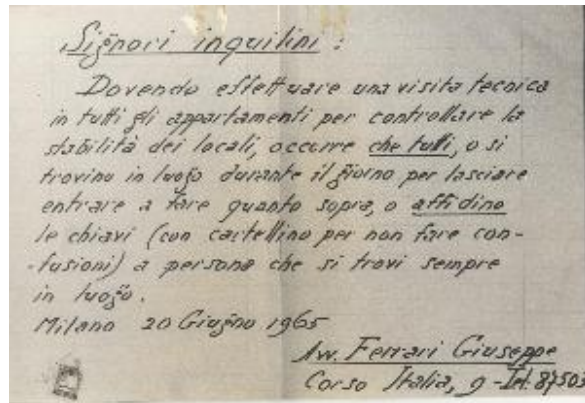 Signori inquilini :
Dovendo effettuare una visita tecnica
in tutti gli appartamenti per controllare la
stabilità dei locali, occorre che tutti, o si
trovino in luogo durante il giorno per lasciare
entrare a fare quanto sopra, o affidino
le chiavi (con cartellino per non fare con-
-fusioni) a persona che si trovi sempre
in luogo.
Milano 20 Giugno 1965
Avv. Ferrari Giuseppe
Corso Italia, 9 - Tel. 87503